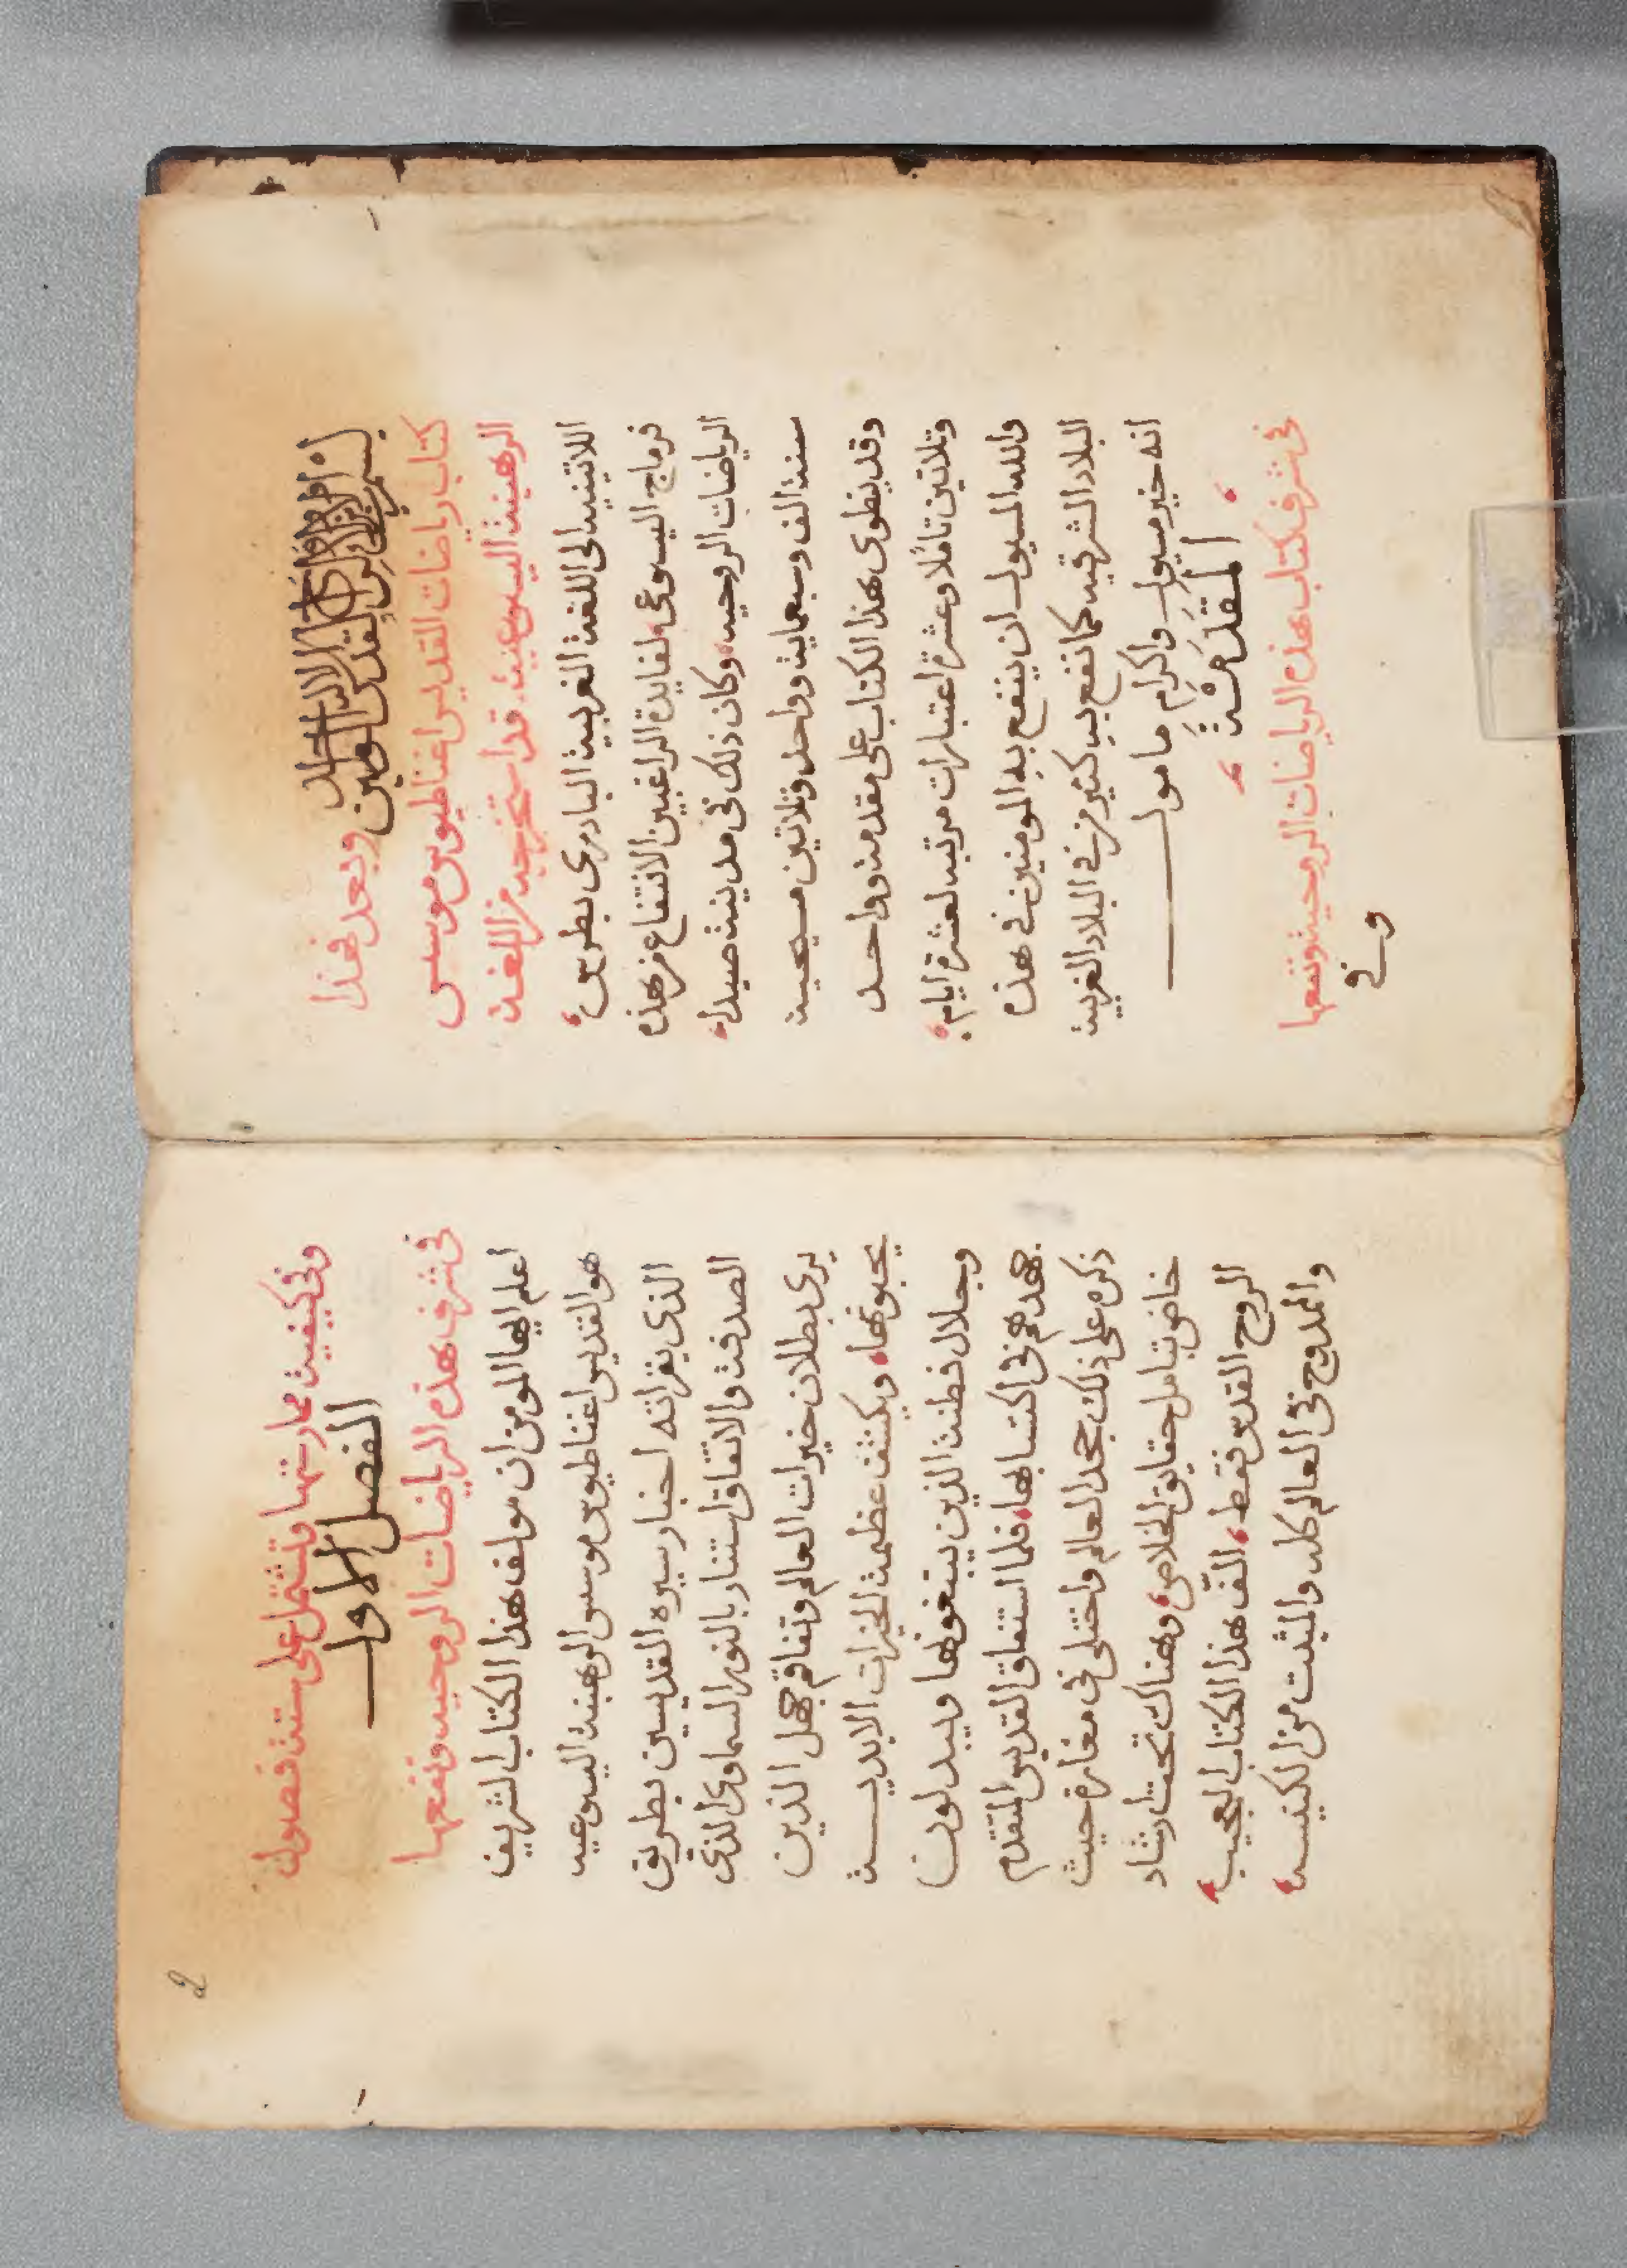 بسم الاب والابن والروح القدس الاله الواحد امين
وبعد فهذا
كتاب رياضات القديس اغناطيوس موسس
الرهبنة اليسوعيية. قد استخرجه من اللغة
اللاتينيه الى اللغة العربية البادري بطرس
فرماج اليسوعى لفايدة الراغبين الانتفاع من هذه
الرياضات الروحيه، وكان ذلك فى مدينة صيدا،
سنة الف وسبعماية وواحد وتلاتين مسيحية
وقد ينطوى هذا الكتاب على مقدمه وواحد
وتلاتين تاملا وعشرة اعتبارات مرتبه لعشرة ايام.
والله المسول ان ينفع به المومنين فى هذه
البلاد الشرقيه كما نفع به كثير من فى البلاد الغربية
انه خير مسول واكرم مامول
المقدمة
فى شرف كتاب هذه الرياضات الروحية ونفعها
وفى
2
وفى كيفية ممارستها وتشتمل على ستة فصول
الفصل الاول
فى شرف هذه الرياضات الروحيه ونفعها
اعلم ايها المومن ان مولف هذا الكتاب الشريف
هو القديس اغناطيوس موسس الرهبنه اليسوعيه
الذى بقراته اخبار سيره القديسين بطريق
الصدفة والاتفاق استنار بالنور السماوى الذى
يرى بطلان خيرات العالم وتفاقم جهل الذين
يحبونها، ويكشف عظمة الخيرات الابدية
وجلال فطنة الذين يبتغونها ويبدلون
جهدهم فى اكتسابها، فلما استفاق القديس المتقدم
ذكره على ذلك جحد العالم واختلى فى مغارة حيث
خاض بتامل حقايق الخلاص، وهناك تحت ارشاد
الروح القدس فقط، الّف هذا الكتاب العجيب
والممدوح فى العالم كله والمثبت من الكنيسة